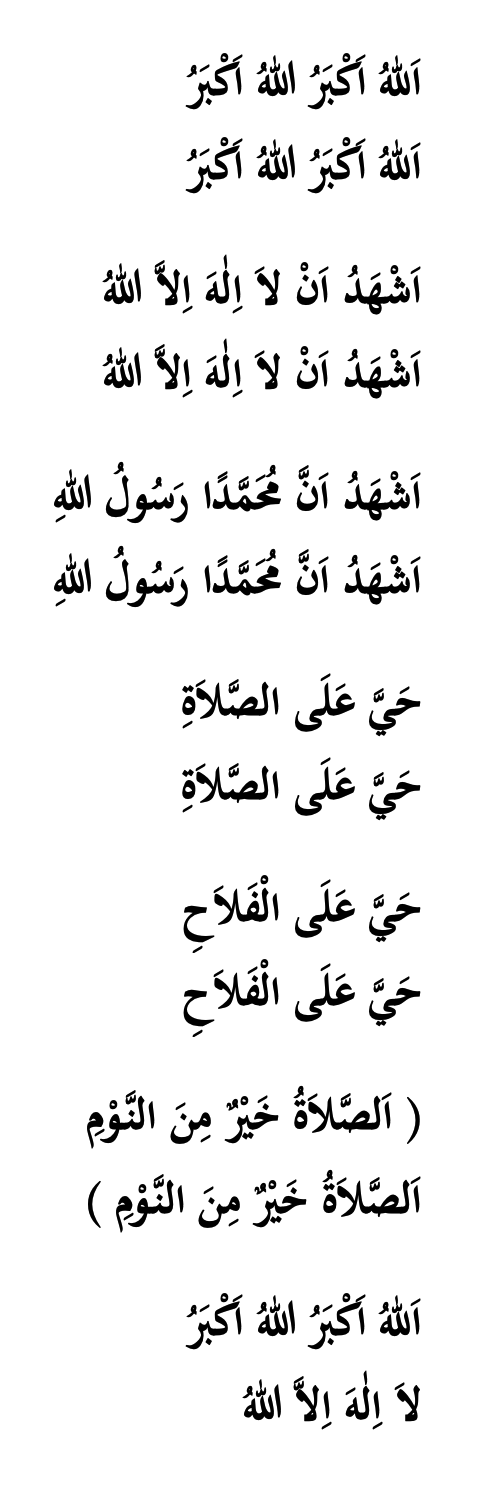 اَللهُ اَكْبَرُ اللهُ اَكْبَرُ
اَللهُ اَكْبَرُ اللهُ اَكْبَرُ
اَشْهَدُ اَنْ لاَ اِلٰهَ اِلاَّ اللهُ
اَشْهَدُ اَنْ لاَ اِلٰهَ اِلاَّ اللهُ
اَشْهَدُ اَنَّ مُحَمَّدًا رَسُولُ اللهِ
اَشْهَدُ اَنَّ مُحَمَّدًا رَسُولُ اللهِ
حَيَّ عَلَى الصَّلاَةِ
حَيَّ عَلَى الصَّلاَةِ
حَيَّ عَلَى الْفَلاَحِ
حَيَّ عَلَى الْفَلاَحِ
( اَلصَّلاَةُ خَيْرٌ مِنَ النَّوْمِ
اَلصَّلاَةُ خَيْرٌ مِنَ النَّوْمِ )
اَللهُ اَكْبَرُ اللهُ اَكْبَرُ
لاَ اِلٰهَ اِلاَّ اللهُ